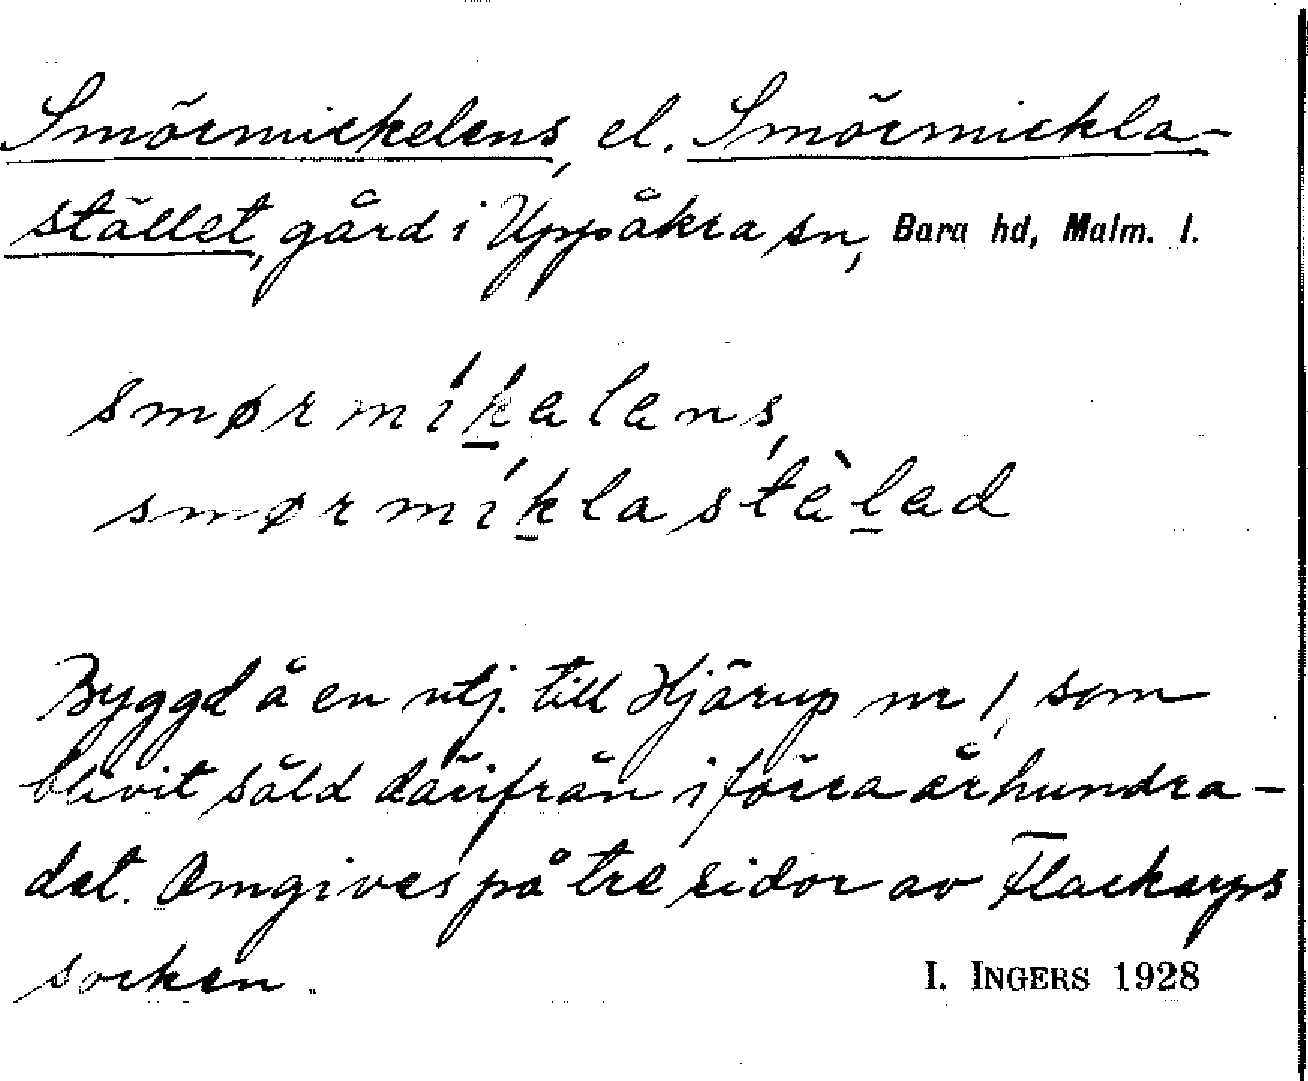 Smörmickelens, el. Smörmickla-
stället, gård i Uppåkra sn, Bara hd, Malm. l.
smørmík̲alans,
smørmík̲lastàl̲ad
Byggd å en utj. till Hjärup nr 1, som
blivit såld därifrån i förra århundra-
det. Omgives på tre sidor av Flackarps
socken.
I. INGERS 1928